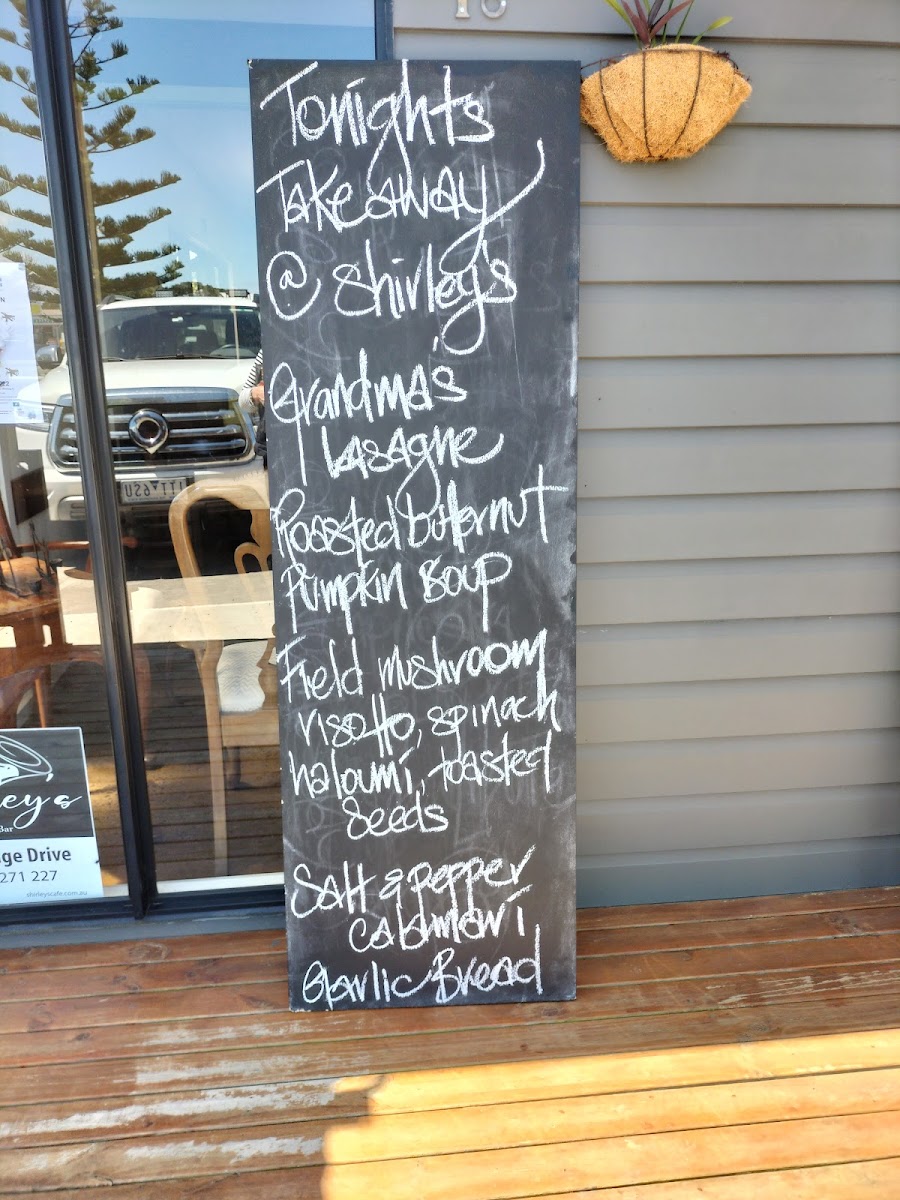 16
Tonights
Takeaway
@ Shirley's
Grandma's
Lasagne
Roasted butternut
Pumpkin Soup
Field mushroom
risotto, spinach
haloumi, toasted
Seeds
Salt & pepper
Calamari
Garlic Bread
ey's
Bar
ge Drive
271 227
shirleyscafe.com.au